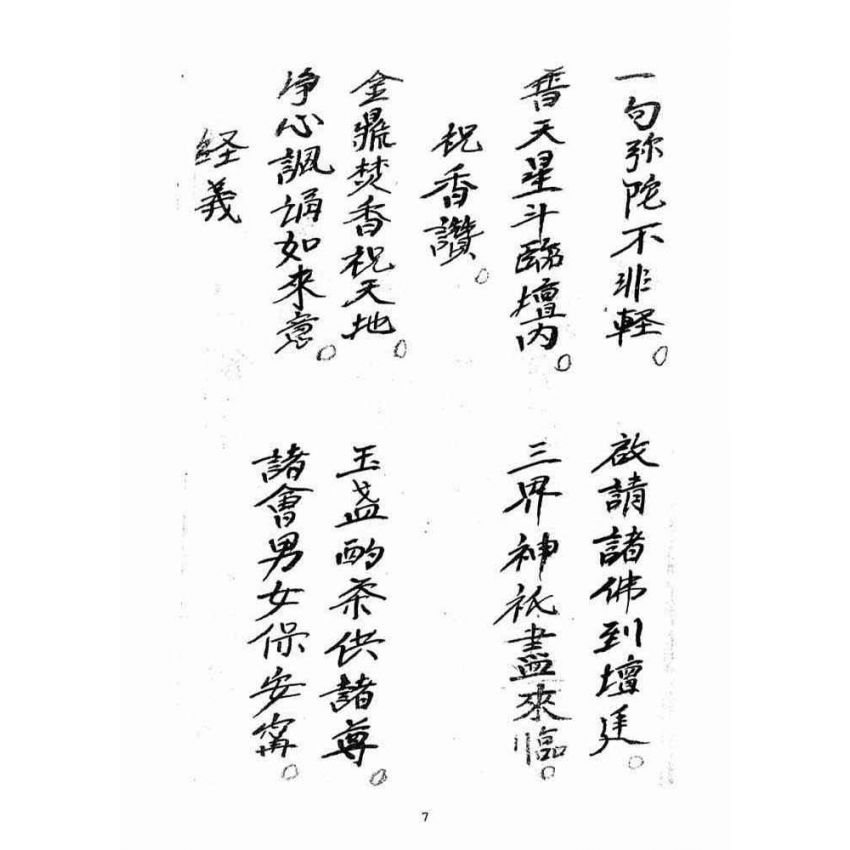 一句弥陀不非軽。 啟請諸佛到壇廷。
普天星斗臨壇内。 三界神祇盡來臨。
祝香讚。
金鼎焚香祝天地。 玉盏酌茶供諸尊。
净心諷誦如來意。 諸會男女保安寗。
経義
7